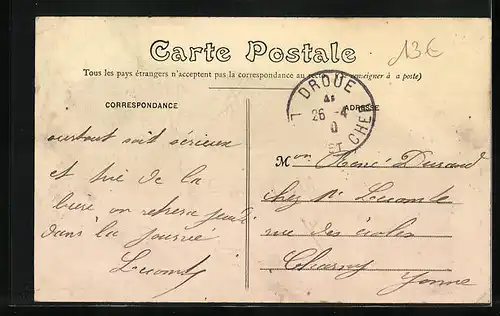 Carte Postale
13€
Tous les pays étrangers n'acceptent pas la correspondance au recto (se renseigner à a poste)
CORRESPONDANCE
ADRESSE
DROUE
26 -4
0
ET CHE
surtout soit sérieux
et de la
bière on jeudi
dans la
Lecomte
Mon René Durand
chez Mr Lecomte
rue des écoles
Charny Yonne